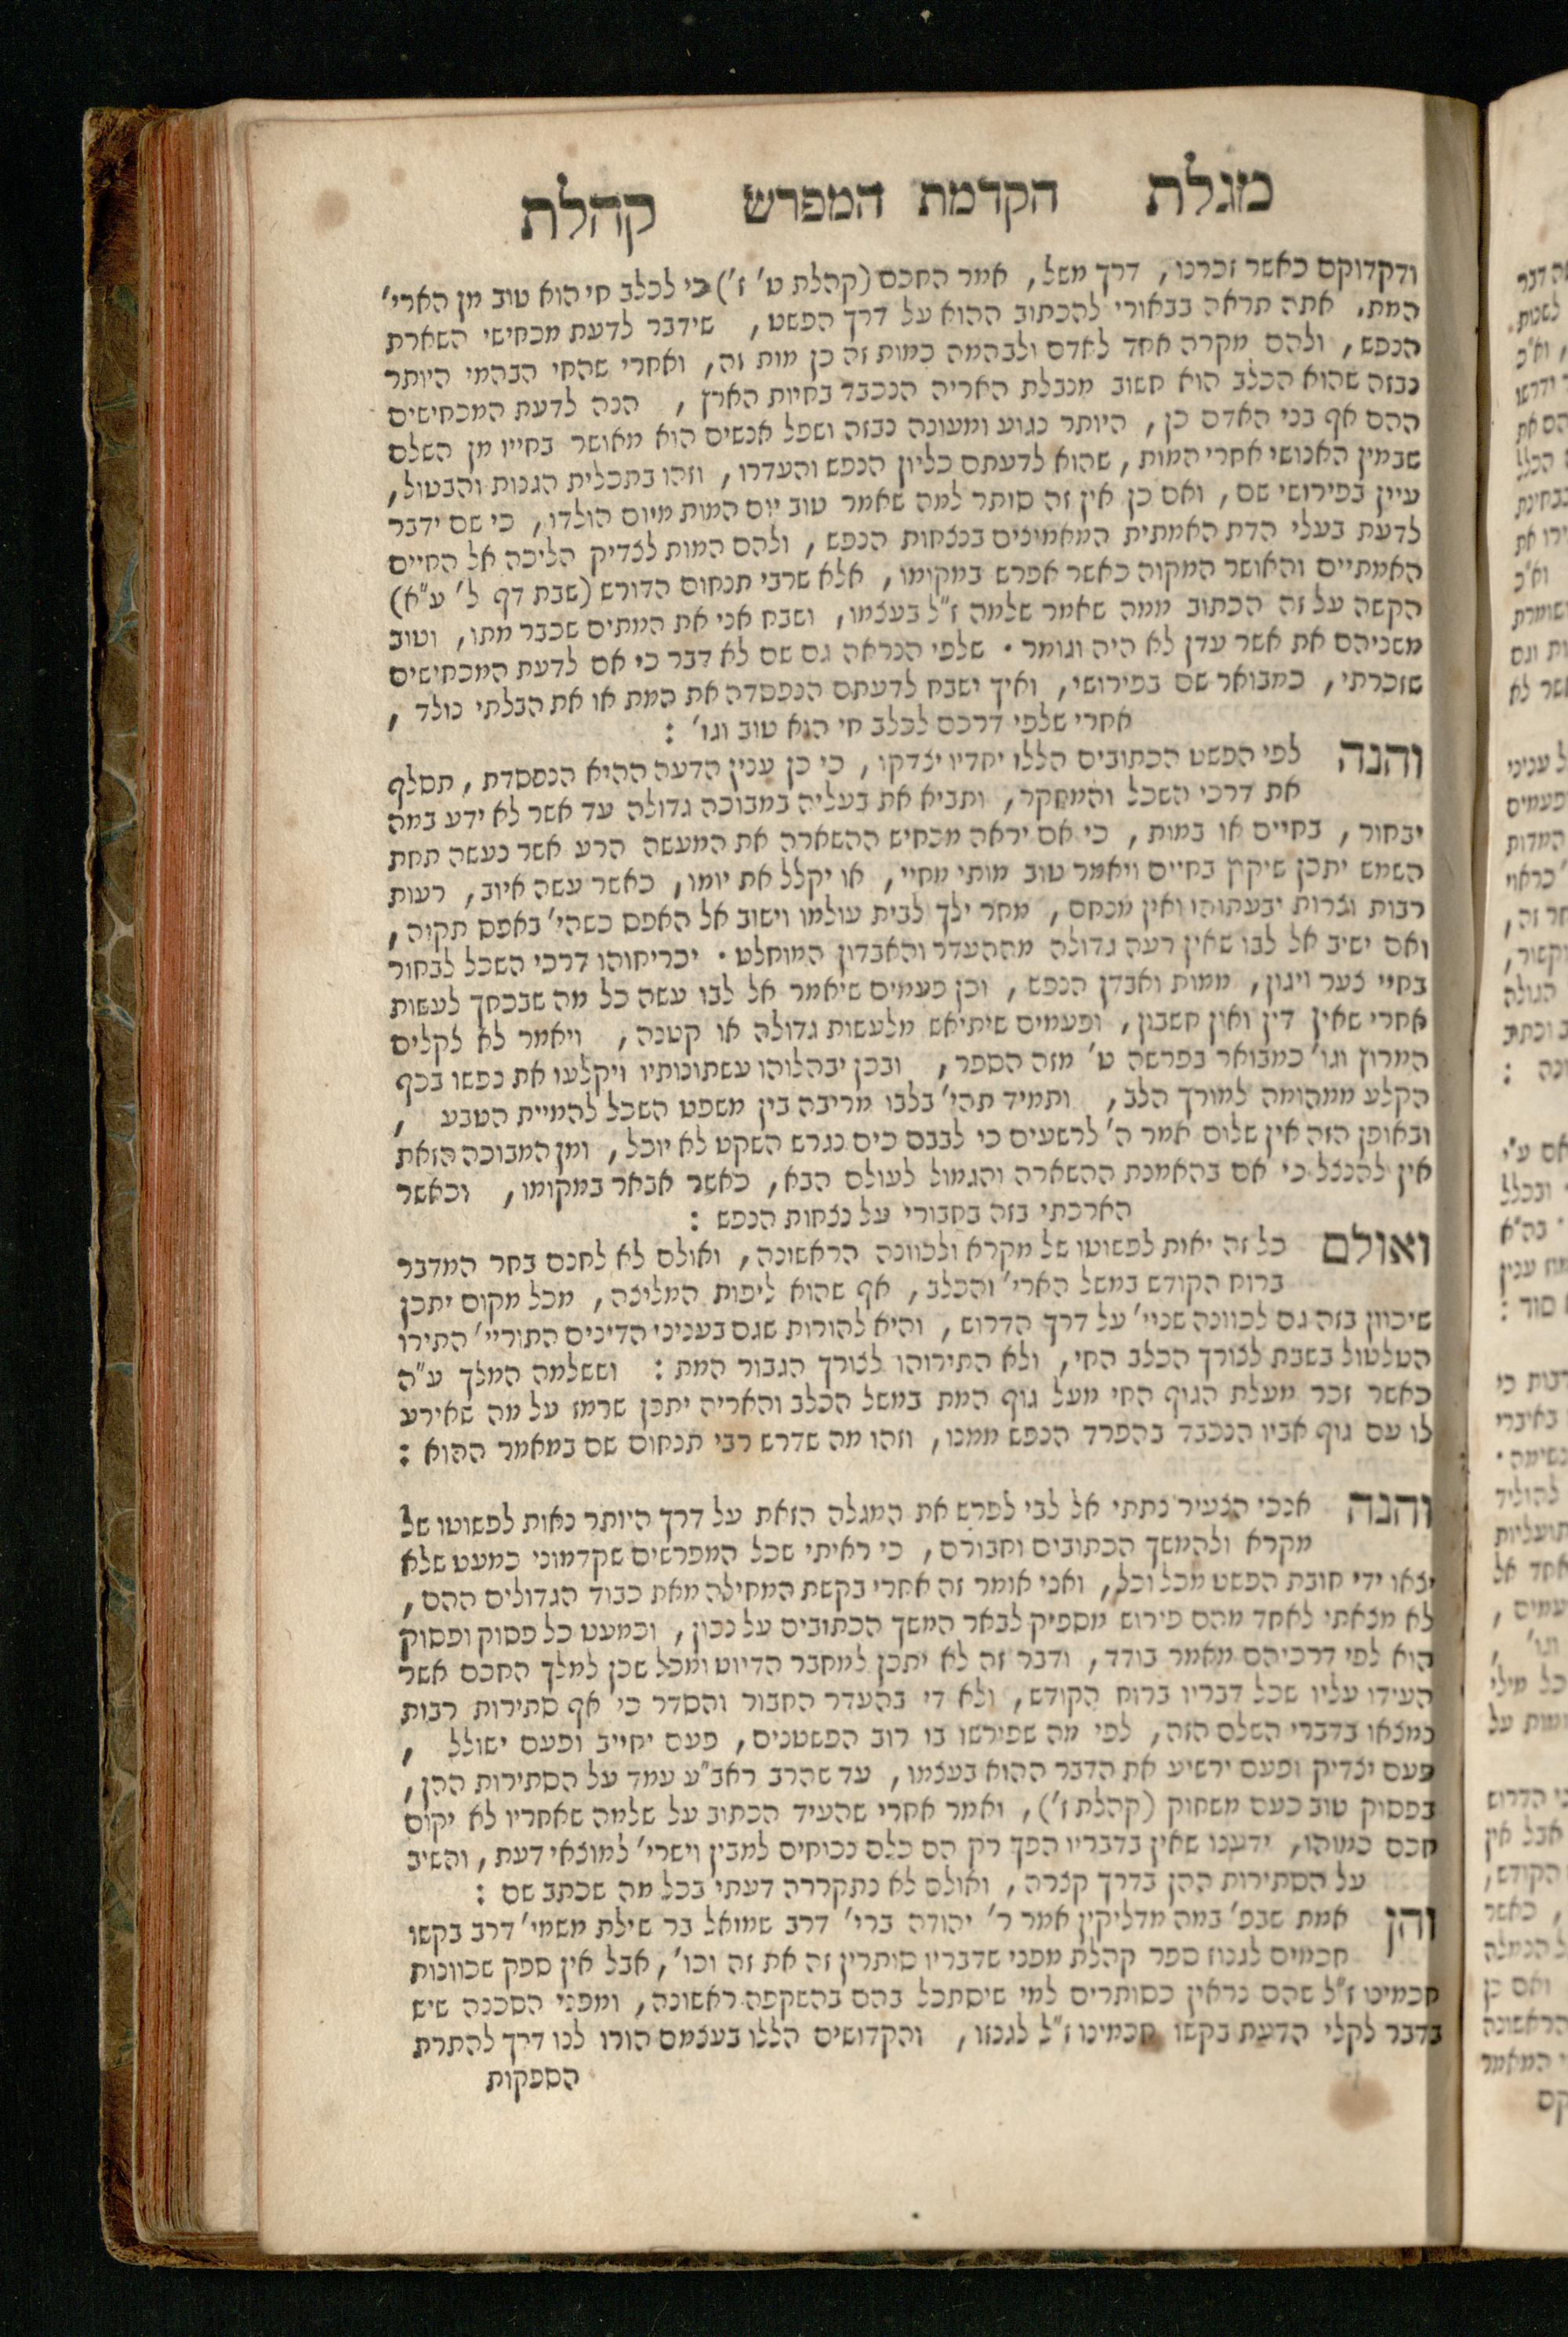 מגלת הקדמת המפרש קהלת
ודקדוקם כאשר זכרנו, דרך משל, אמר החכם (קהלת ט' ז') כי לכלב חי הוא טוב מן הארי'
המת. אתה תראה בבאורי להכתוב ההוא על דרך הפשט, שידבר לדעת מכחישי השארת
הנפש, ולהם מקרה אחד לאדם ולבהמה כמות זה כן מות זה, ואחרי שהחי הבהמי היותר
נבזה שהוא הכלב הוא חשוב מנבלת האריה הנכבד בחיות הארץ, הנה לדעת המכחישים
ההם אף בני האדם כן, היותר נגוע ומעונה נבזה ושפל אנשים הוא מאושר בחייו מן השלם
שבמין האנושי אחרי המות, שהוא לדעתם כליון הנפש והעדרו, וזהו בתכלית הגנות והבטול,
עיין בפירושי שם, ואם כן אין זה סותר למה שאמר טוב יום המות מיום הולדו, כי שם ידבר
לדעת בעלי הדת האמתית המאמינים בנצחות הנפש, ולהם המות לצדיק הליכה אל החיים
האמתיים והאושר המקוה כאשר אפרש במקומו, אלא שרבי תנחום הדורש (שבת דף ל' ע"א)
הקשה על זה הכתוב ממה שאמר שלמה ז"ל בעצמו, ושבח אני את המתים שכבר מתו, וטוב
משניהם את אשר עדן לא היה וגומר. שלפי הנראה גם שם לא דבר כי אם לדעת המכחישים
שזכרתי, כמבואר שם בפירושי, ואיך ישבח לדעתם הנפסדה את המת או את הבלתי נולד,
אחרי שלפי דרכם לכלב חי הוא טוב וגו' :
והנה לפי הפשט הכתובים הללו יחדיו יצדקו, כי כן ענין הדעה ההיא הנפסדת, תסלף
את דרכי השכל והמחקר, ותביא את בעליה במבוכה גדולה עד אשר לא ידע במה
יבחור, בחיים או במות, כי אם יראה מכחיש ההשארה את המעשה הרע אשר נעשה תחת
השמש יתכן שיקוץ בחיים ויאמר טוב מותי מחיי, או יקלל את יומו, כאשר עשה איוב, רעות
רבות וצרות יבעתוהו ואין מנחם, מחר ילך לבית עולמו וישוב אל האפס כשהי' באפס תקוה,
ואם ישיב אל לבו שאין רעה גדולה מההעדר והאבדון המוחלט. יכריחוהו דרכי השכל לבחור
בחיי צער ויגון, ממות ואבדן הנפש, וכן פעמים שיאמר אל לבו עשה כל מה שבכחך לעשות
אחרי שאין דין ואין חשבון, ופעמים שיתיאש מלעשות גדולה או קטנה, ויאמר לא לקלים
המרוץ וגו' כמבואר בפרשה ט' מזה הספר, ובכן יבהלוהו עשתונותיו ויקלעו את נפשו בכף
הקלע ממהומה למורך הלב, ותמיד תהי' בלבו מריבה בין משפט השכל להמיית הטבע,
ובאופן הזה אין שלום אמר ה' לרשעים כי לבבם כים נגרש השקט לא יוכל, ומן המבוכה הזאת
אין להנצל כי אם בהאמנת ההשארה והגמול לעולם הבא, כאשר אבאר במקומו, וכאשר
הארכתי בזה בחבורי על נצחות הנפש :
ואולם כל זה יאות לפשוטו של מקרא ולכוונה הראשונה, ואולם לא לחנם בחר המדבר
ברוח הקודש במשל הארי' והכלב, אף שהוא ליפות המליצה, מכל מקום יתכן
שיכוון בזה גם לכוונה שניי' על דרך הדרוש, והיא להורות שגם בעניני הדינים התוריי' התירו
הטלטול בשבת לצורך הכלב החי, ולא התירוהו לצורך הגבור המת : וששלמה המלך ע"ה
כאשר זכר מעלת הגוף החי מעל גוף המת במשל הכלב והאריה יתכן שרמז על מה שאירע
לו עם גוף אביו הנכבד בהפרד הנפש ממנו, וזהו מה שדרש רבי תנחום שם במאמר ההוא :
והנה אנכי הצעיר נתתי אל לבי לפרש את המגלה הזאת על דרך היותר נאות לפשוטו של
מקרא ולהמשך הכתובים וחבורם, כי ראיתי שכל המפרשים שקדמוני כמעט שלא
יצאו ידי חובת הפשט מכל וכל, ואני אומר זה אחרי בקשת המחילה מאת כבוד הגדולים ההם,
לא מצאתי לאחד מהם פירוש מספיק לבאר המשך הכתובים על נכון, וכמעט כל פסוק ופסוק
הוא לפי דרכיהם מאמר בודד, ודבר זה לא יתכן למחבר הדיוט ומכל שכן למלך החכם אשר
העידו עליו שכל דבריו ברוח הקודש, ולא די בהעדר החבור והסדר כי אף סתירות רבות
נמצאו בדברי השלם הזה, לפי מה שפירשו בו רוב הפשטנים, פעם יחייב ופעם ישולל,
פעם יצדיק ופעם ירשיע את הדבר ההוא בעצמו, עד שהרב ראב"ע עמד על הסתירות ההן,
בפסוק טוב כעס משחוק (קהלת ז'), ואמר אחרי שהעיד הכתוב על שלמה שאחריו לא יקום
חכם כמוהו, ידענו שאין בדבריו הפך רק הם כלם נכוחים למבין וישרי' למוצאי דעת, והשיב
על הסתירות ההן בדרך קצרה, ואולם לא נתקררה דעתי בכל מה שכתב שם :
והן אמת שבפ' במה מדליקין אמר ר' יהודה ברי' דרב שמואל בר שילת משמי' דרב בקשו
חכמים לגנוז ספר קהלת מפני שדבריו סותרין זה את זה וכו', אבל אין ספק שכוונות
חכמינו ז"ל שהם נראין כסותרים למי שיסתכל בהם בהשקפה ראשונה, ומפני הסכנה שיש
בדבר לקלי הדעת בקשו חכמינו ז"ל לגנזו, והקדושים הללו בעצמם הורו לנו דרך להתרת
הספקות